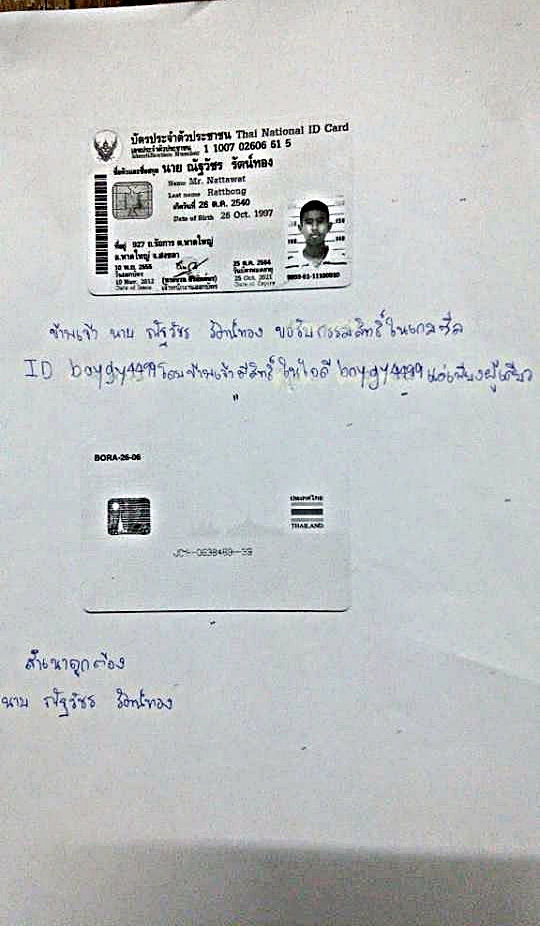 บัตรประจำตัวประชาชน Thai National ID Card
เลขประจำตัวประชาชน
Identification Number 1 1007 02606 61 5
ชื่อตัวและชื่อสกุล นาย ณัฐวัชร รัตน์ทอง
Name Mr. Nattawat
Last name Ratthong
เกิดวันที่ 26 ต.ค. 2540
Date of Birth 26 Oct. 1997
ที่อยู่ 927 ถ.รัถการ ต.หาดใหญ่
อ.หาดใหญ่ จ.สงขลา
10 พ.ย. 2555
วันออกบัตร
10 Nov. 2012
Date of Issue
เจ้าพนักงานออกบัตร
25 ต.ค. 2564
วันบัตรหมดอายุ
25 Oct. 2021
Date of Expiry
ข้าพเจ้า นาย ณัฐวัชร รัตน์ทอง ขอรับกรรมสิทธิ์ในเกม
ID boygy4499 โดยข้าพเจ้ามีสิทธิ์ในไอดี boygy4499 แต่เพียงผู้เดียว
BORA-26-06
ประเทศไทย
THAILAND
สำเนาถูกต้อง
นาย ณัฐวัชร รัตน์ทอง